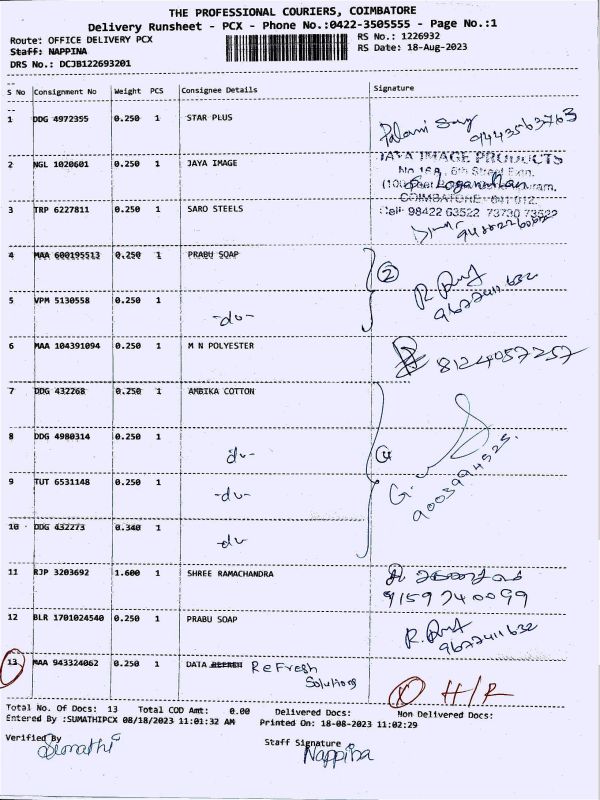 THE PROFESSIONAL COURIERS, COIMBATORE
Delivery Runsheet - PCX - Phone No.:0422-3505555 - Page No.:1
Route: OFFICE DELIVERY PCX
RS No.: 1226932
Staff: NAPPINA
RS Date: 18-Aug-2023
DRS No.: DCJB122693201
S No Consignment No Weight PCS Consignee Details Signature
1 DDG 4972355 0.250 1 STAR PLUS
Palani 9443563763
2 NGL 1020601 0.250 1 JAYA IMAGE
JAYA IMAGE PRODUCTS
No.16A, 6th Street Extn.
(100 Feet
COIMBATORE - 641 012.
Cell: 98422 63522 73730 73522
3 TRP 6227811 0.250 1 SARO STEELS
4 MAA 600195513 0.250 1 PRABU SOAP
2
9677411632
5 VPM 5130558 0.250 1
-do-
6 MAA 104391094 0.250 1 M N POLYESTER
8124057257
7 DDG 432268 0.250 1 AMBIKA COTTON
8 DDG 4980314 0.250 1
do-
4
9 TUT 6531148 0.250 1
-do-
9003994525
10 DDG 432273 0.340 1
-do-
11 RJP 3203692 1.600 1 SHREE RAMACHANDRA
9159740099
12 BLR 1701024540 0.250 1 PRABU SOAP
9677411632
13 MAA 943324062 0.250 1 DATA REFRESH ReFresh
Solutions
X H/R
Total No. Of Docs: 13 Total COD Amt: 0.00 Delivered Docs: Non Delivered Docs:
Entered By :SUMATHIPCX 08/18/2023 11:01:32 AM Printed On: 18-08-2023 11:02:29
Verified By
Staff Signature
Sumathi
Nappina